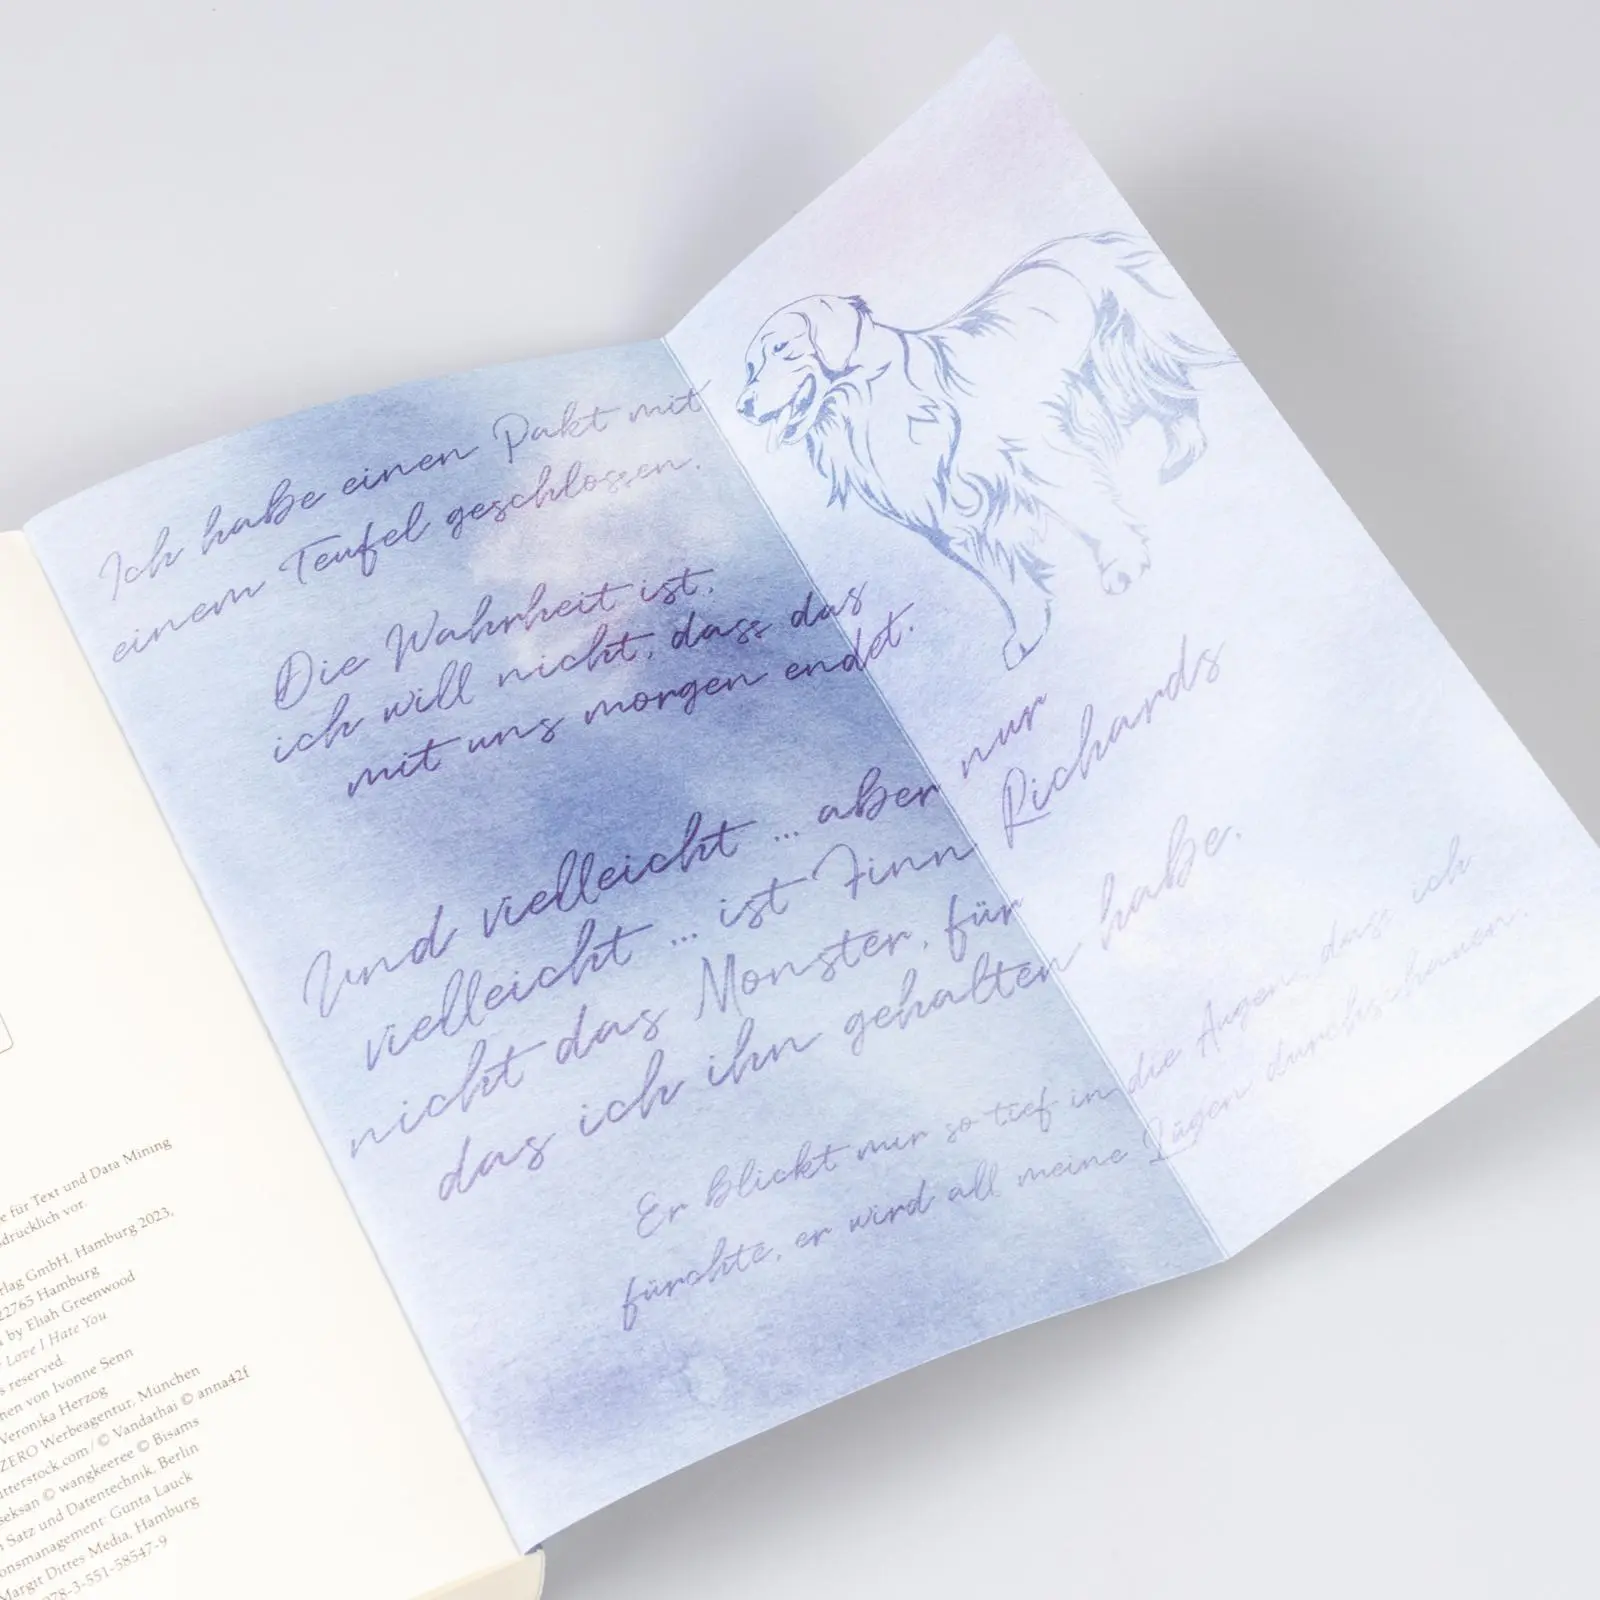 Ich habe einen Pakt mit
einem Teufel geschlossen.
Die Wahrheit ist,
ich will nicht, dass das
mit uns morgen endet.
Und vielleicht ... aber nur
vielleicht ... ist Finn Richards
nicht das Monster, für
das ich ihn gehalten habe.
Er blickt mir so tief in die Augen, dass ich
fürchte, er wird all meine Lügen durchschauen.
e für Text und Data Mining
drücklich vor.
rlag GmbH, Hamburg 2023,
22765 Hamburg
by Eliah Greenwood
Love I Hate You
s reserved.
nen von Ivonne Senn
Veronika Herzog
ZERO Werbeagentur, München
tterstock.com / © Vandathai © anna42f
seksan © wangkeeree © Bisams
Satz und Datentechnik, Berlin
onsmanagement: Gunta Lauck
Margit Dittes Media, Hamburg
978-3-551-58547-9